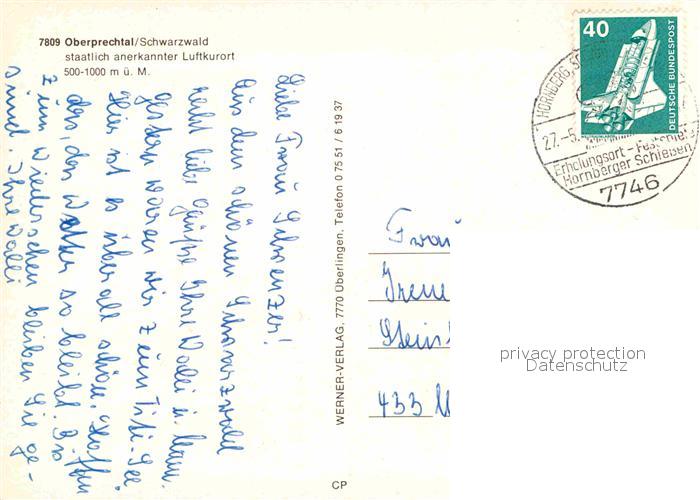 7809 Oberprechtal/Schwarzwald
staatlich anerkannter Luftkurort
500-1000 m ü. M.
Liebe Frau
Aus dem schönen Schwarzwald
liebe Grüße Ihre Walli u. Mann.
gestern waren wir zum Titi-See
Hier ist es überall schön. Hoffen
das, das Wetter so bleibt. Bis
zum Wiedersehen bleiben Sie ge-
sund. Ihre Walli
WERNER-VERLAG, 7770 Überlingen, Telefon 0 75 51 / 6 19 37
CP
40
DEUTSCHE BUNDESPOST
HORNBERG, SCHWARZ
27.-5.
Erholungsort - Festspiel
Hornberger Schießen
7746
Frau
Irene
Stein
433 M
privacy protection
Datenschutz